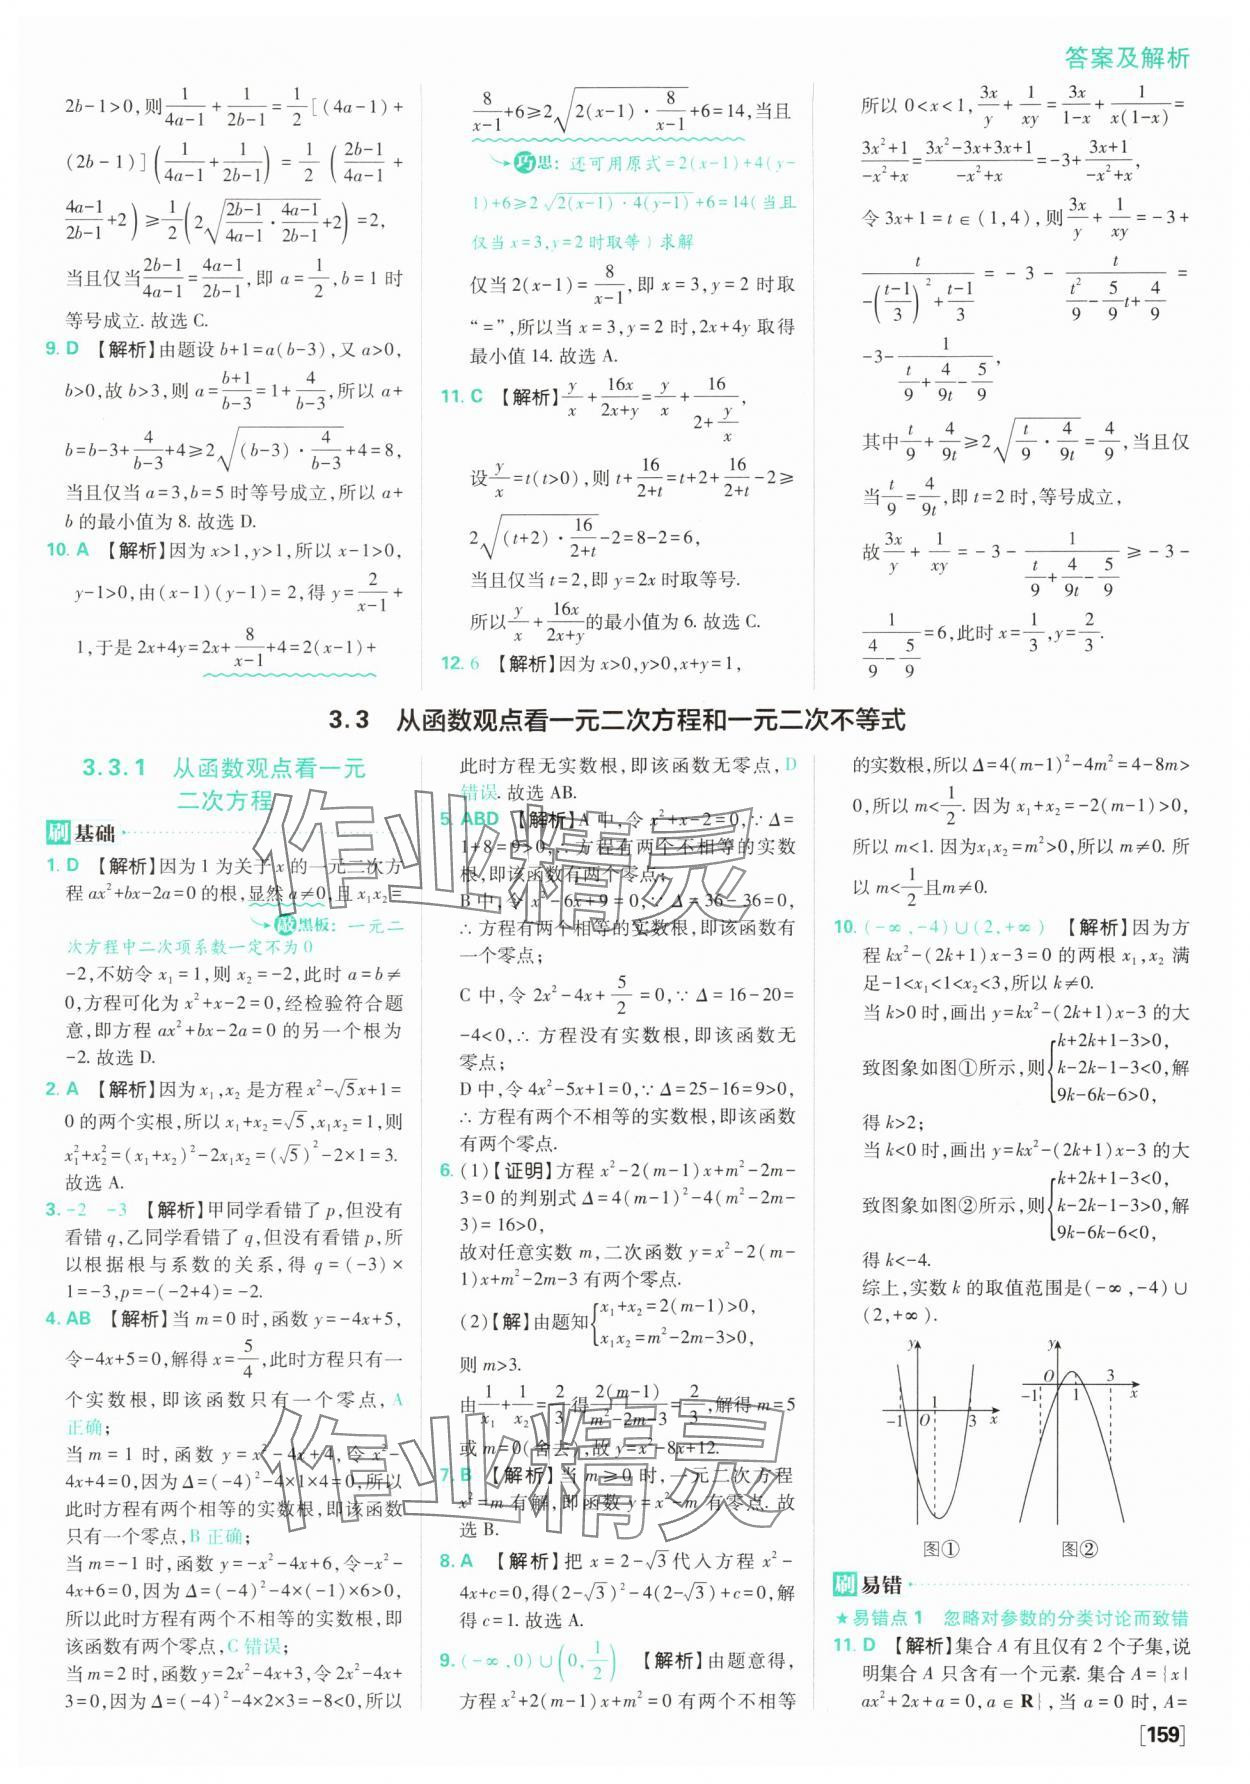 答案及解析
2b-1>0,则1/(4a-1)+1/(2b-1)=1/2[(4a-1)+
(2b-1)](1/(4a-1)+1/(2b-1))=1/2((2b-1)/(4a-1)+
(4a-1)/(2b-1)+2)≥1/2(2√((2b-1)/(4a-1)·(4a-1)/(2b-1))+2)=2,
当且仅当(2b-1)/(4a-1)=(4a-1)/(2b-1),即 a=1/2,b=1 时
等号成立.故选 C.
9. D 【解析】由题设 b+1=a(b-3),又 a>0,
b>0,故 b>3,则 a=(b+1)/(b-3)=1+4/(b-3),所以 a+
b=b-3+4/(b-3)+4≥2√((b-3)·4/(b-3))+4=8,
当且仅当 a=3,b=5 时等号成立,所以 a+
b 的最小值为 8.故选 D.
10. A 【解析】因为 x>1,y>1,所以 x-1>0,
y-1>0,由(x-1)(y-1)=2,得 y=2/(x-1)+
1,于是 2x+4y=2x+8/(x-1)+4=2(x-1)+
8/(x-1)+6≥2√(2(x-1)·8/(x-1))+6=14,当且
巧思:还可用原式=2(x-1)+4(y-
1)+6≥2√(2(x-1)·4(y-1))+6=14(当且
仅当 x=3,y=2 时取等)求解
仅当 2(x-1)=8/(x-1),即 x=3,y=2 时取
“=”,所以当 x=3,y=2 时,2x+4y 取得
最小值 14.故选 A.
11. C 【解析】y/x+16x/(2x+y)=y/x+16/(2+y/x),
设y/x=t(t>0),则 t+16/(2+t)=t+2+16/(2+t)-2≥
2√((t+2)·16/(2+t))-2=8-2=6,
当且仅当 t=2,即 y=2x 时取等号.
所以y/x+16x/(2x+y)的最小值为 6.故选 C.
12. 6 【解析】因为 x>0,y>0,x+y=1,
所以 0<x<1,3x/y+1/(xy)=3x/(1-x)+1/(x(1-x))=
(3x²+1)/(-x²+x)=(3x²-3x+3x+1)/(-x²+x)=-3+(3x+1)/(-x²+x),
令 3x+1=t∈(1,4),则3x/y+1/(xy)=-3+
t/(-((t-1)/3)²+(t-1)/3)=-3-t/(t²/9-5/9t+4/9)=
-3-1/(t/9+4/(9t)-5/9),
其中t/9+4/(9t)≥2√(t/9·4/(9t))=4/9,当且仅
当t/9=4/(9t),即 t=2 时,等号成立,
故3x/y+1/(xy)=-3-1/(t/9+4/(9t)-5/9)≥-3-
1/(4/9-5/9)=6,此时 x=1/3,y=2/3.
3.3 从函数观点看一元二次方程和一元二次不等式
3.3.1 从函数观点看一元
二次方程
刷基础
1. D 【解析】因为 1 为关于 x 的一元二次方
程 ax²+bx-2a=0 的根,显然 a≠0,且 x₁x₂=
敲黑板:一元二
次方程中二次项系数一定不为 0
-2,不妨令 x₁=1,则 x₂=-2,此时 a=b≠
0,方程可化为 x²+x-2=0,经检验符合题
意,即方程 ax²+bx-2a=0 的另一个根为
-2.故选 D.
2. A 【解析】因为 x₁,x₂ 是方程 x²-√5x+1=
0 的两个实根,所以 x₁+x₂=√5,x₁x₂=1,则
x₁²+x₂²=(x₁+x₂)²-2x₁x₂=(√5)²-2×1=3.
故选 A.
3. -2 -3 【解析】甲同学看错了 p,但没有
看错 q,乙同学看错了 q,但没有看错 p,所
以根据根与系数的关系,得 q=(-3)×
1=-3,p=-(-2+4)=-2.
4. AB 【解析】当 m=0 时,函数 y=-4x+5,
令-4x+5=0,解得 x=5/4,此时方程只有一
个实数根,即该函数只有一个零点,A
正确;
当 m=1 时,函数 y=x²-4x+4,令 x²-
4x+4=0,因为 Δ=(-4)²-4×1×4=0,所以
此时方程有两个相等的实数根,即该函数
只有一个零点,B 正确;
当 m=-1 时,函数 y=-x²-4x+6,令-x²-
4x+6=0,因为 Δ=(-4)²-4×(-1)×6>0,
所以此时方程有两个不相等的实数根,即
该函数有两个零点,C 错误;
当 m=2 时,函数 y=2x²-4x+3,令 2x²-4x+
3=0,因为 Δ=(-4)²-4×2×3=-8<0,所以
此时方程无实数根,即该函数无零点,D
错误.故选 AB.
5. ABD 【解析】A 中,令 x²+x-2=0,∵Δ=
1+8=9>0,∴方程有两个不相等的实数
根,即该函数有两个零点;
B 中,令 x²-6x+9=0,∵Δ=36-36=0,
∴方程有两个相等的实数根,即该函数有
一个零点;
C 中,令 2x²-4x+5/2=0,∵Δ=16-20=
-4<0,∴方程没有实数根,即该函数无
零点;
D 中,令 4x²-5x+1=0,∵Δ=25-16=9>0,
∴方程有两个不相等的实数根,即该函数
有两个零点.
6. (1)【证明】方程 x²-2(m-1)x+m²-2m-
3=0 的判别式 Δ=4(m-1)²-4(m²-2m-
3)=16>0,
故对任意实数 m,二次函数 y=x²-2(m-
1)x+m²-2m-3 有两个零点.
(2)【解】由题知{x₁+x₂=2(m-1)>0,
x₁x₂=m²-2m-3>0,
则 m>3.
由1/x₁+1/x₂=2/3得2(m-1)/(m²-2m-3)=2/3,解得 m=5
或 m=0(舍去),故 y=x²-8x+12.
7. B 【解析】当 m≥0 时,一元二次方程
x²=m 有解,即函数 y=x²-m 有零点.故
选 B.
8. A 【解析】把 x=2-√3代入方程 x²-
4x+c=0,得(2-√3)²-4(2-√3)+c=0,解
得 c=1.故选 A.
9. (-∞,0)∪(0,1/2) 【解析】由题意得,
方程 x²+2(m-1)x+m²=0 有两个不相等
的实数根,所以 Δ=4(m-1)²-4m²=4-8m>
0,所以 m<1/2.因为 x₁+x₂=-2(m-1)>0,
所以 m<1.因为x₁x₂=m²>0,所以 m≠0.所
以 m<1/2且m≠0.
10. (-∞,-4)∪(2,+∞) 【解析】因为方
程 kx²-(2k+1)x-3=0 的两根 x₁,x₂ 满
足-1<x₁<1<x₂<3,所以 k≠0.
当 k>0 时,画出 y=kx²-(2k+1)x-3 的大
致图象如图①所示,则{k+2k+1-3>0,
k-2k-1-3<0,解
9k-6k-6>0,
得 k>2;
当 k<0 时,画出 y=kx²-(2k+1)x-3 的大
致图象如图②所示,则{k+2k+1-3<0,
k-2k-1-3>0,解
9k-6k-6<0,
得 k<-4.
综上,实数 k 的取值范围是(-∞,-4)∪
(2,+∞).
y
-1 O 1 3 x
图①
y
-1 O 1 3 x
图②
刷易错
★易错点 1 忽略对参数的分类讨论而致错
11. D 【解析】集合 A 有且仅有 2 个子集,说
明集合 A 只含有一个元素.集合 A={x|
ax²+2x+a=0,a∈R},当 a=0 时,A=
[159]
作业精灵
作业精灵